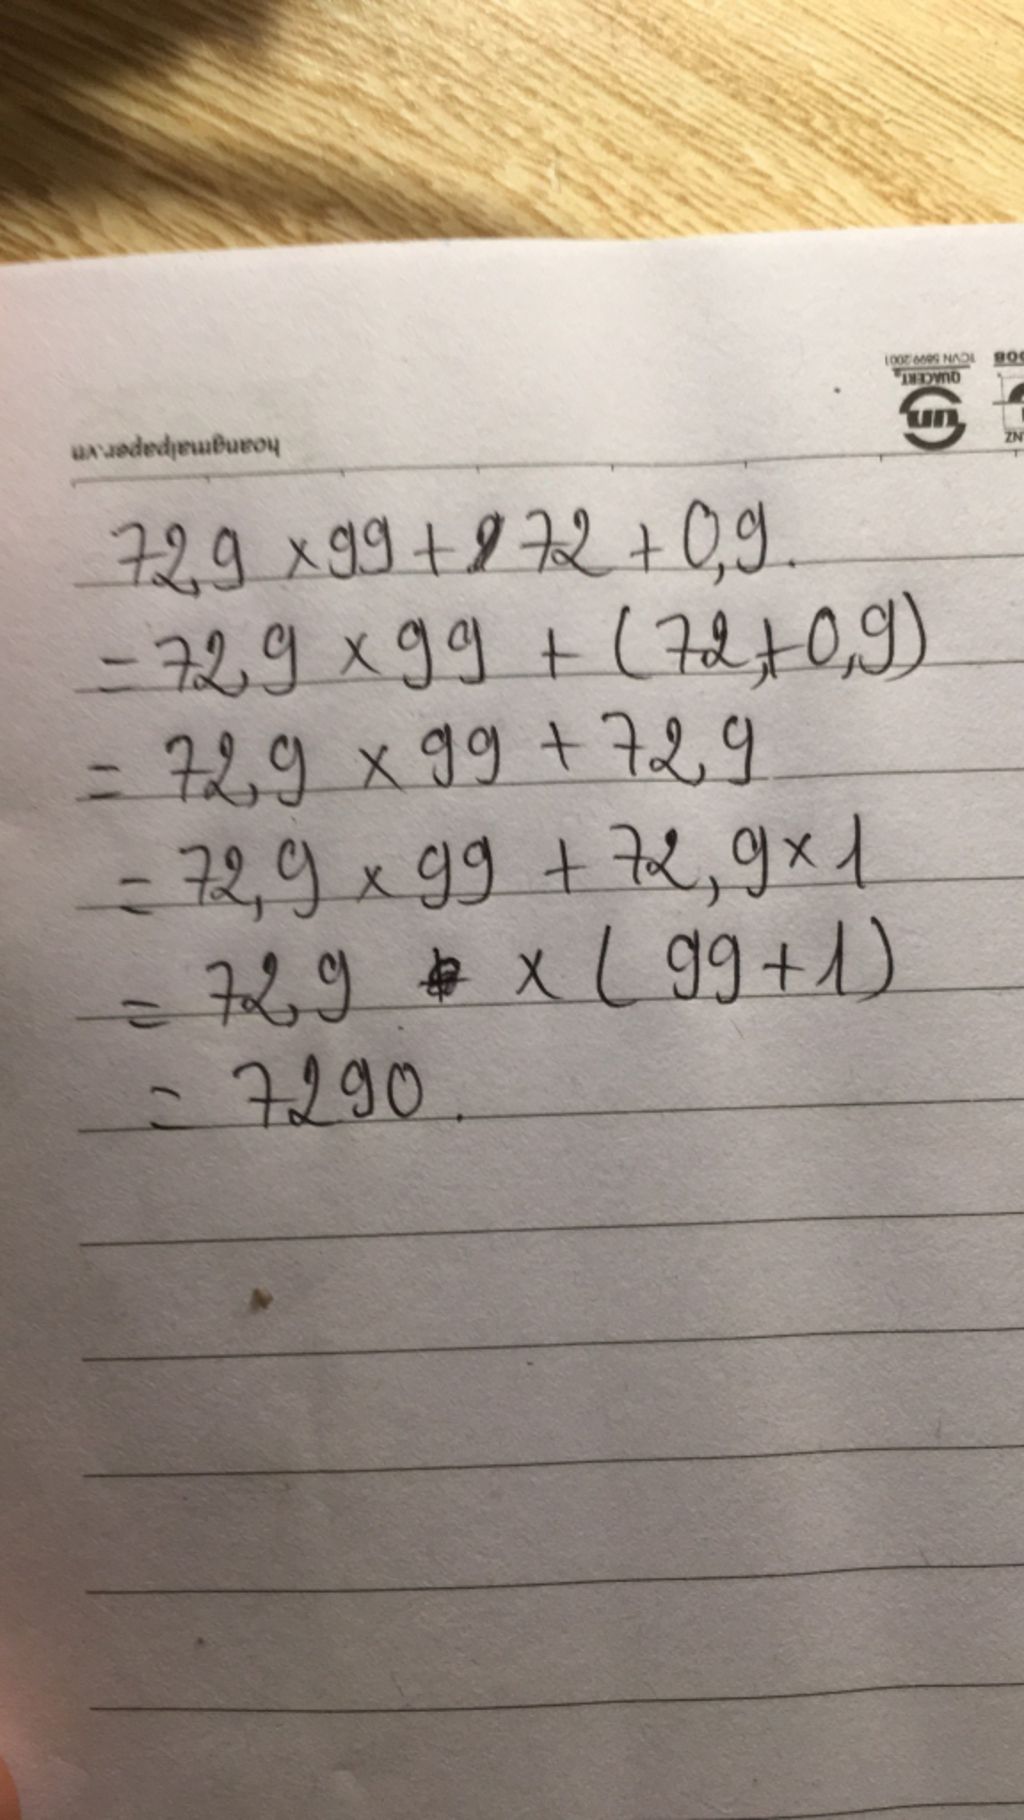 hoangmaipaper.vn
QUACERT
TCVN 5899:2001
72,9 × 99 + 72 + 0,9.
= 72,9 × 99 + (72 + 0,9)
= 72,9 × 99 + 72,9
= 72,9 × 99 + 72,9 × 1
= 72,9 × (99 + 1)
= 7290.